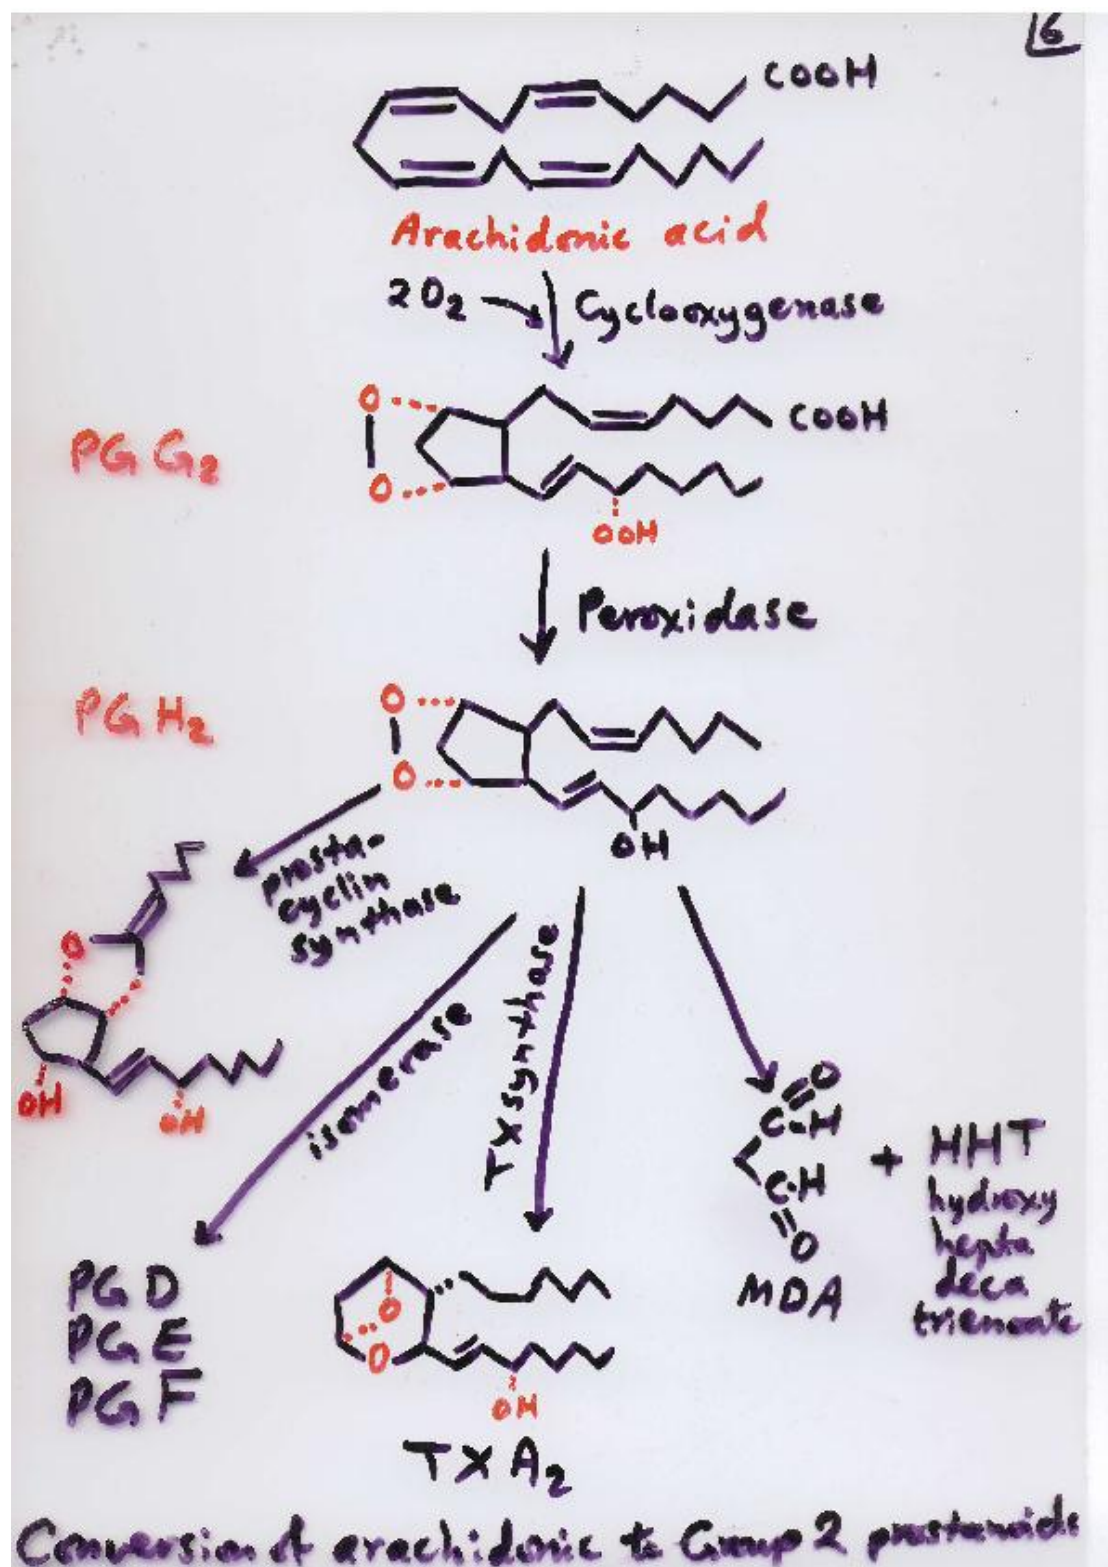 6
COOH
Arachidonic acid
2O₂
Cyclooxygenase
PG G₂
O
O
COOH
OOH
Peroxidase
PG H₂
O
O
OH
prosta-
cyclin
synthase
O
OH
OH
isomerase
TX synthase
O
C-H
C-H
O
MDA
+ HHT
hydroxy
hepta
deca
trienoate
PG D
PG E
PG F
O
O
OH
TXA₂
Conversion of arachidonic to Group 2 prostanoids